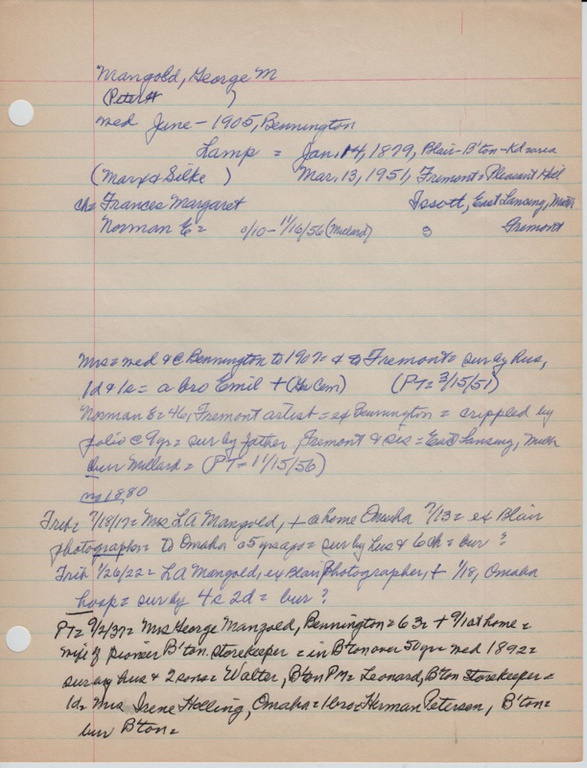 Mangold, George M
(Peter H )
med June - 1905, Bennington
Lamp = Jan. 14, 1879, Blair-B'ton-Kd area
(Marx & Silke ) Mar. 13, 1951, Fremont = Pleasant Hill
ch= Frances Margaret Issott, East Lansing, Mich
Norman E = 0/10 - 11/16/56 (Millard) S Fremont
Mrs = med & @ Bennington to 1907 = & to Fremont = sur by hus,
1d & 1s = a bro Emil + ( Cem) (PT = 3/15/51)
Norman E = 46, Fremont artist = ex Bennington = crippled by
polio @ 9 yr = sur by father, Fremont & sis = East Lansing, Mich
bur Millard = (PT - 11/15/56)
no 1880
Trib = 7/18/17 = Mrs L A Mangold, + @ home Omaha 7/13 = ex Blair
photographer = to Omaha 05 yrs ago = sur by hus & 6 ch = bur ?
Trib 1/26/22 = L A Mangold, ex Blair Photographer, + 1/18, Omaha
hosp = sur by 4s 2d = bur ?
PT = 9/2/37 = Mrs George Mangold, Bennington = 63 = + 9/1 at home =
wife of pioneer B'ton storekeeper = in B'ton over 50 yr = med 1892 =
sur by hus & 2 sons = Walter, B'ton PM = Leonard, B'ton Storekeeper =
1d = Mrs Irene Holling, Omaha = 1 bro = Herman Petersen, B'ton =
bur B'ton =